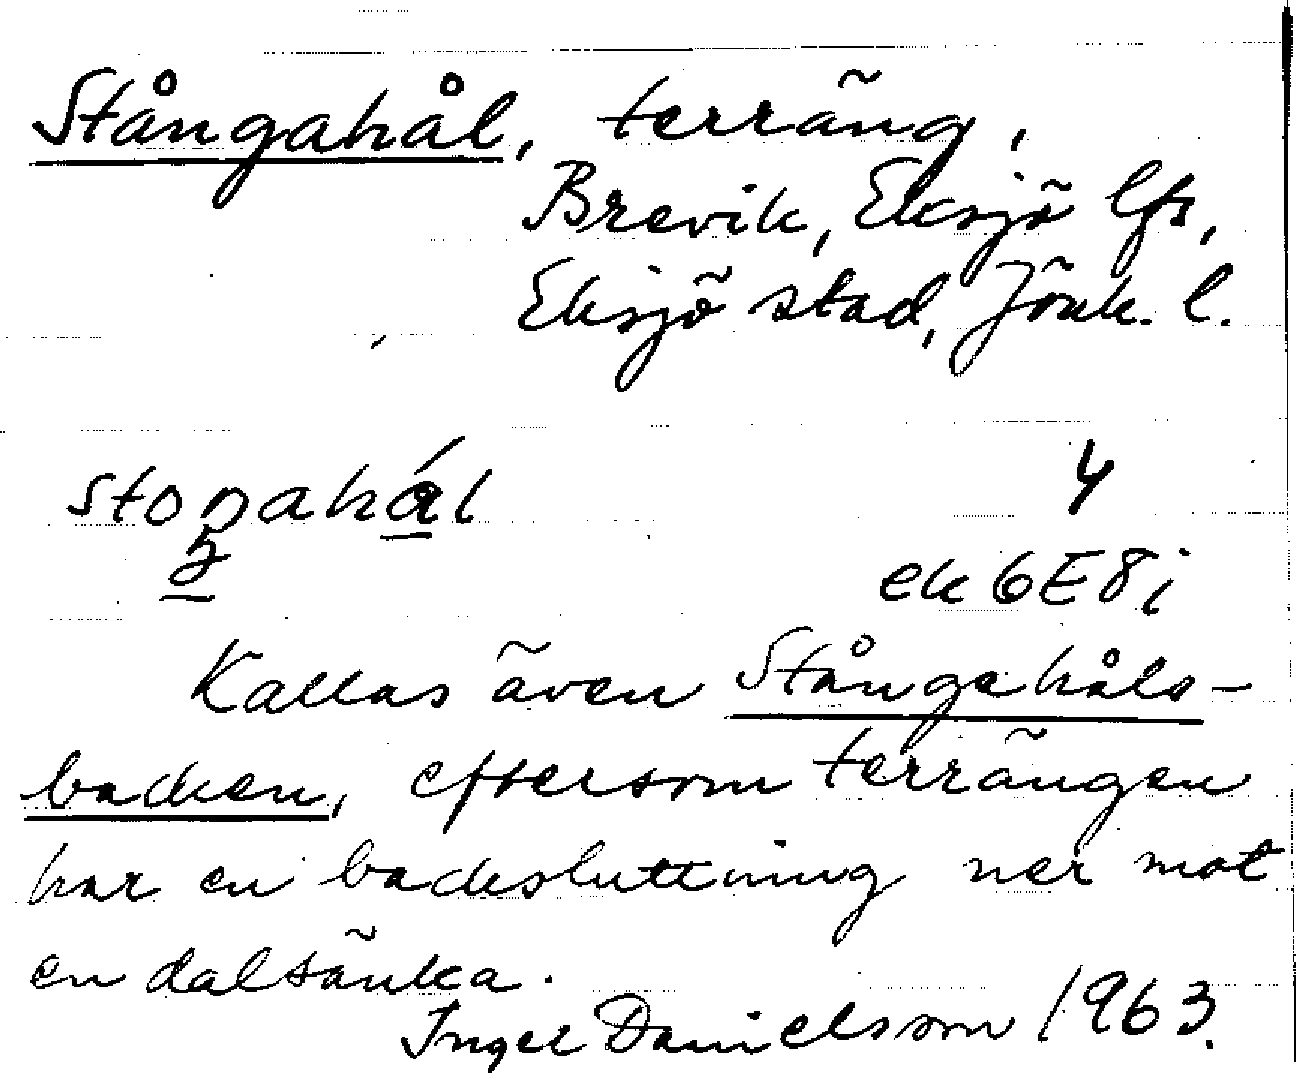 Stångahål, terräng,
Brevik, Eksjö lfs,
Eksjö stad, Jönk. l.
4
ek 6E8i
Kallas även Stångahåls-
backen, eftersom terrängen
har en backsluttning ner mot
en dalsänka.
Inger Danielsson 1963.